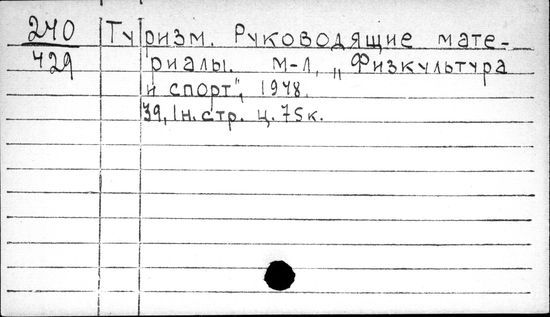 240 Туризм. Руководящие мате-
429 риалы. М-Л, „Физкультура
и спорт", 1948.
39, 1н. стр. ц. 75к.